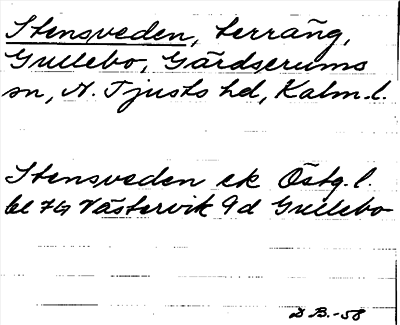 Stensveden, terräng,
Gullebo, Gärdserums
sn, N. Tjusts hd, Kalm. l.
Stensveden ek Östg. l.
bl 74 Västervik 9d Gullebo
D B.-58